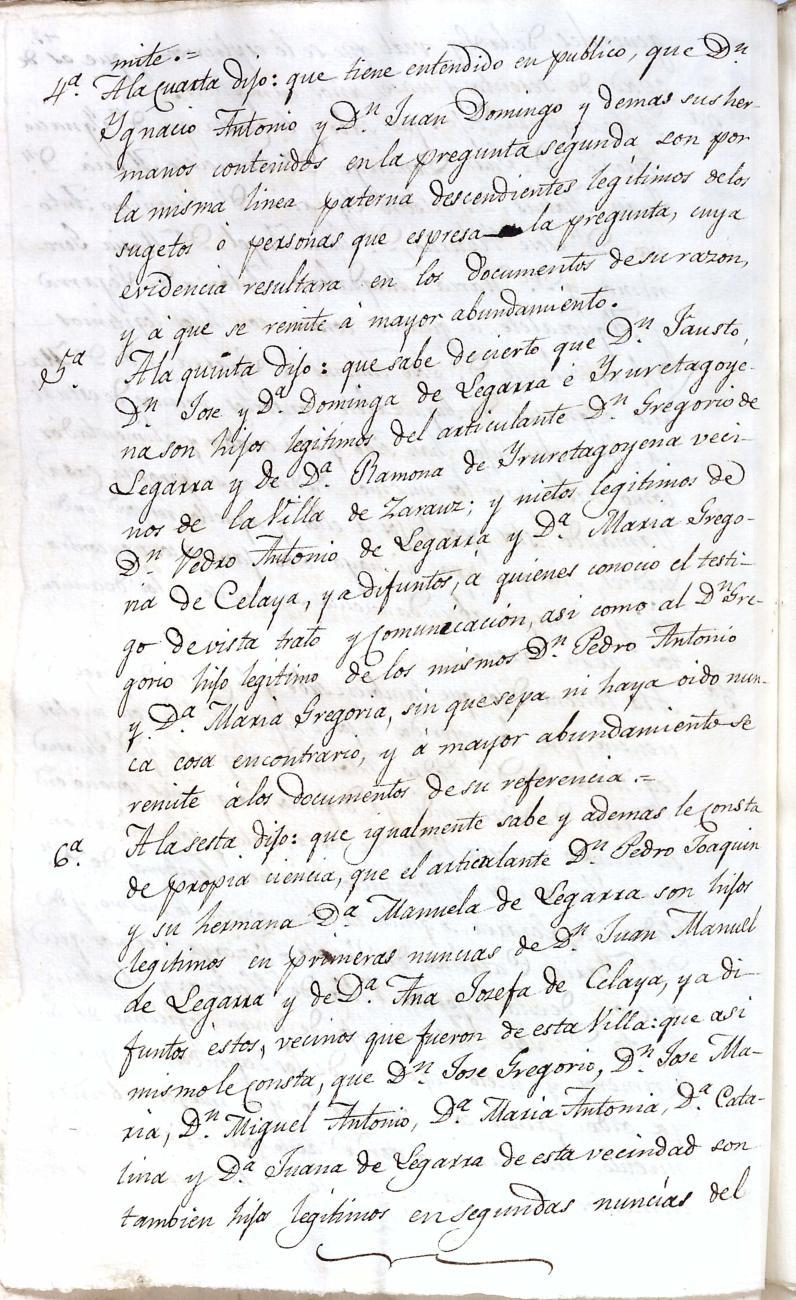 mite.=
4ª. A la cuarta dijo: que tiene entendido en publico, que Dn
Ygnacio Antonio y Dn. Juan Domingo y demas sus her-
manos contenidos en la pregunta segunda son por
la misma linea paterna descendientes legitimos de los
sugetos o personas que espresa la pregunta, cuya
evidencia resultara en los documentos de su razon,
y á que se remite á mayor abundamiento.
5ª. A la quinta dijo: que sabe de cierto que Dn. Fausto,
Dn. Jose y Dª. Dominga de Legarra é Yruretagoye-
na son hijos legitimos del articulante Dn. Gregorio de
Legarra y de Dª. Ramona de Yruretagoyena veci-
nos de la Villa de Zarauz; y nietos legitimos de
Dn. Pedro Antonio de Legarra y Dª. Maria Grego-
ria de Celaya, ya difuntos, á quienes conocio el testi-
go de vista trato y comunicación, asi como al Dn. Gre-
gorio hijo legitimo de los mismos Dn. Pedro Antonio
y Dª. Maria Gregoria, sin que sepa ni haya oido nun-
ca cosa encontrario, y á mayor abundamiento se
remite á los documentos de su referencia.=
6ª. A la sesta dijo: que igualmente sabe y ademas le consta
de propia ciencia, que el articulante Dn. Pedro Joaquin
y su hermana Dª. Manuela de Legarra son hijos
legitimos en primeras nuncias de Dn. Juan Manuel
de Legarra y de Dª. Ana Josefa de Celaya, ya di-
funtos estos, vecinos que fueron de esta Villa: que asi
mismo le consta, que Dn. Jose Gregorio, Dn. Jose Ma-
ria, Dn. Miguel Antonio, Dª. Maria Antonia, Dª. Cata-
lina y Dª. Juana de Legarra de esta vecindad son
tambien hijos legitimos en segundas nuncias del